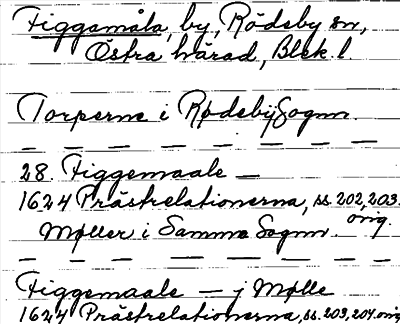 Figgamåla, by, Rödeby sn,
Östra härad, Blek. l.
Torperne i Rødebÿ Sognn.
28. Figgemaale —
1624 Prästrelationerna, ss. 202, 203. orig.
Møller i Samme Sognn.
Figgemaale — j Mølle
1624 Prästrelationerna, ss. 203, 204. orig.